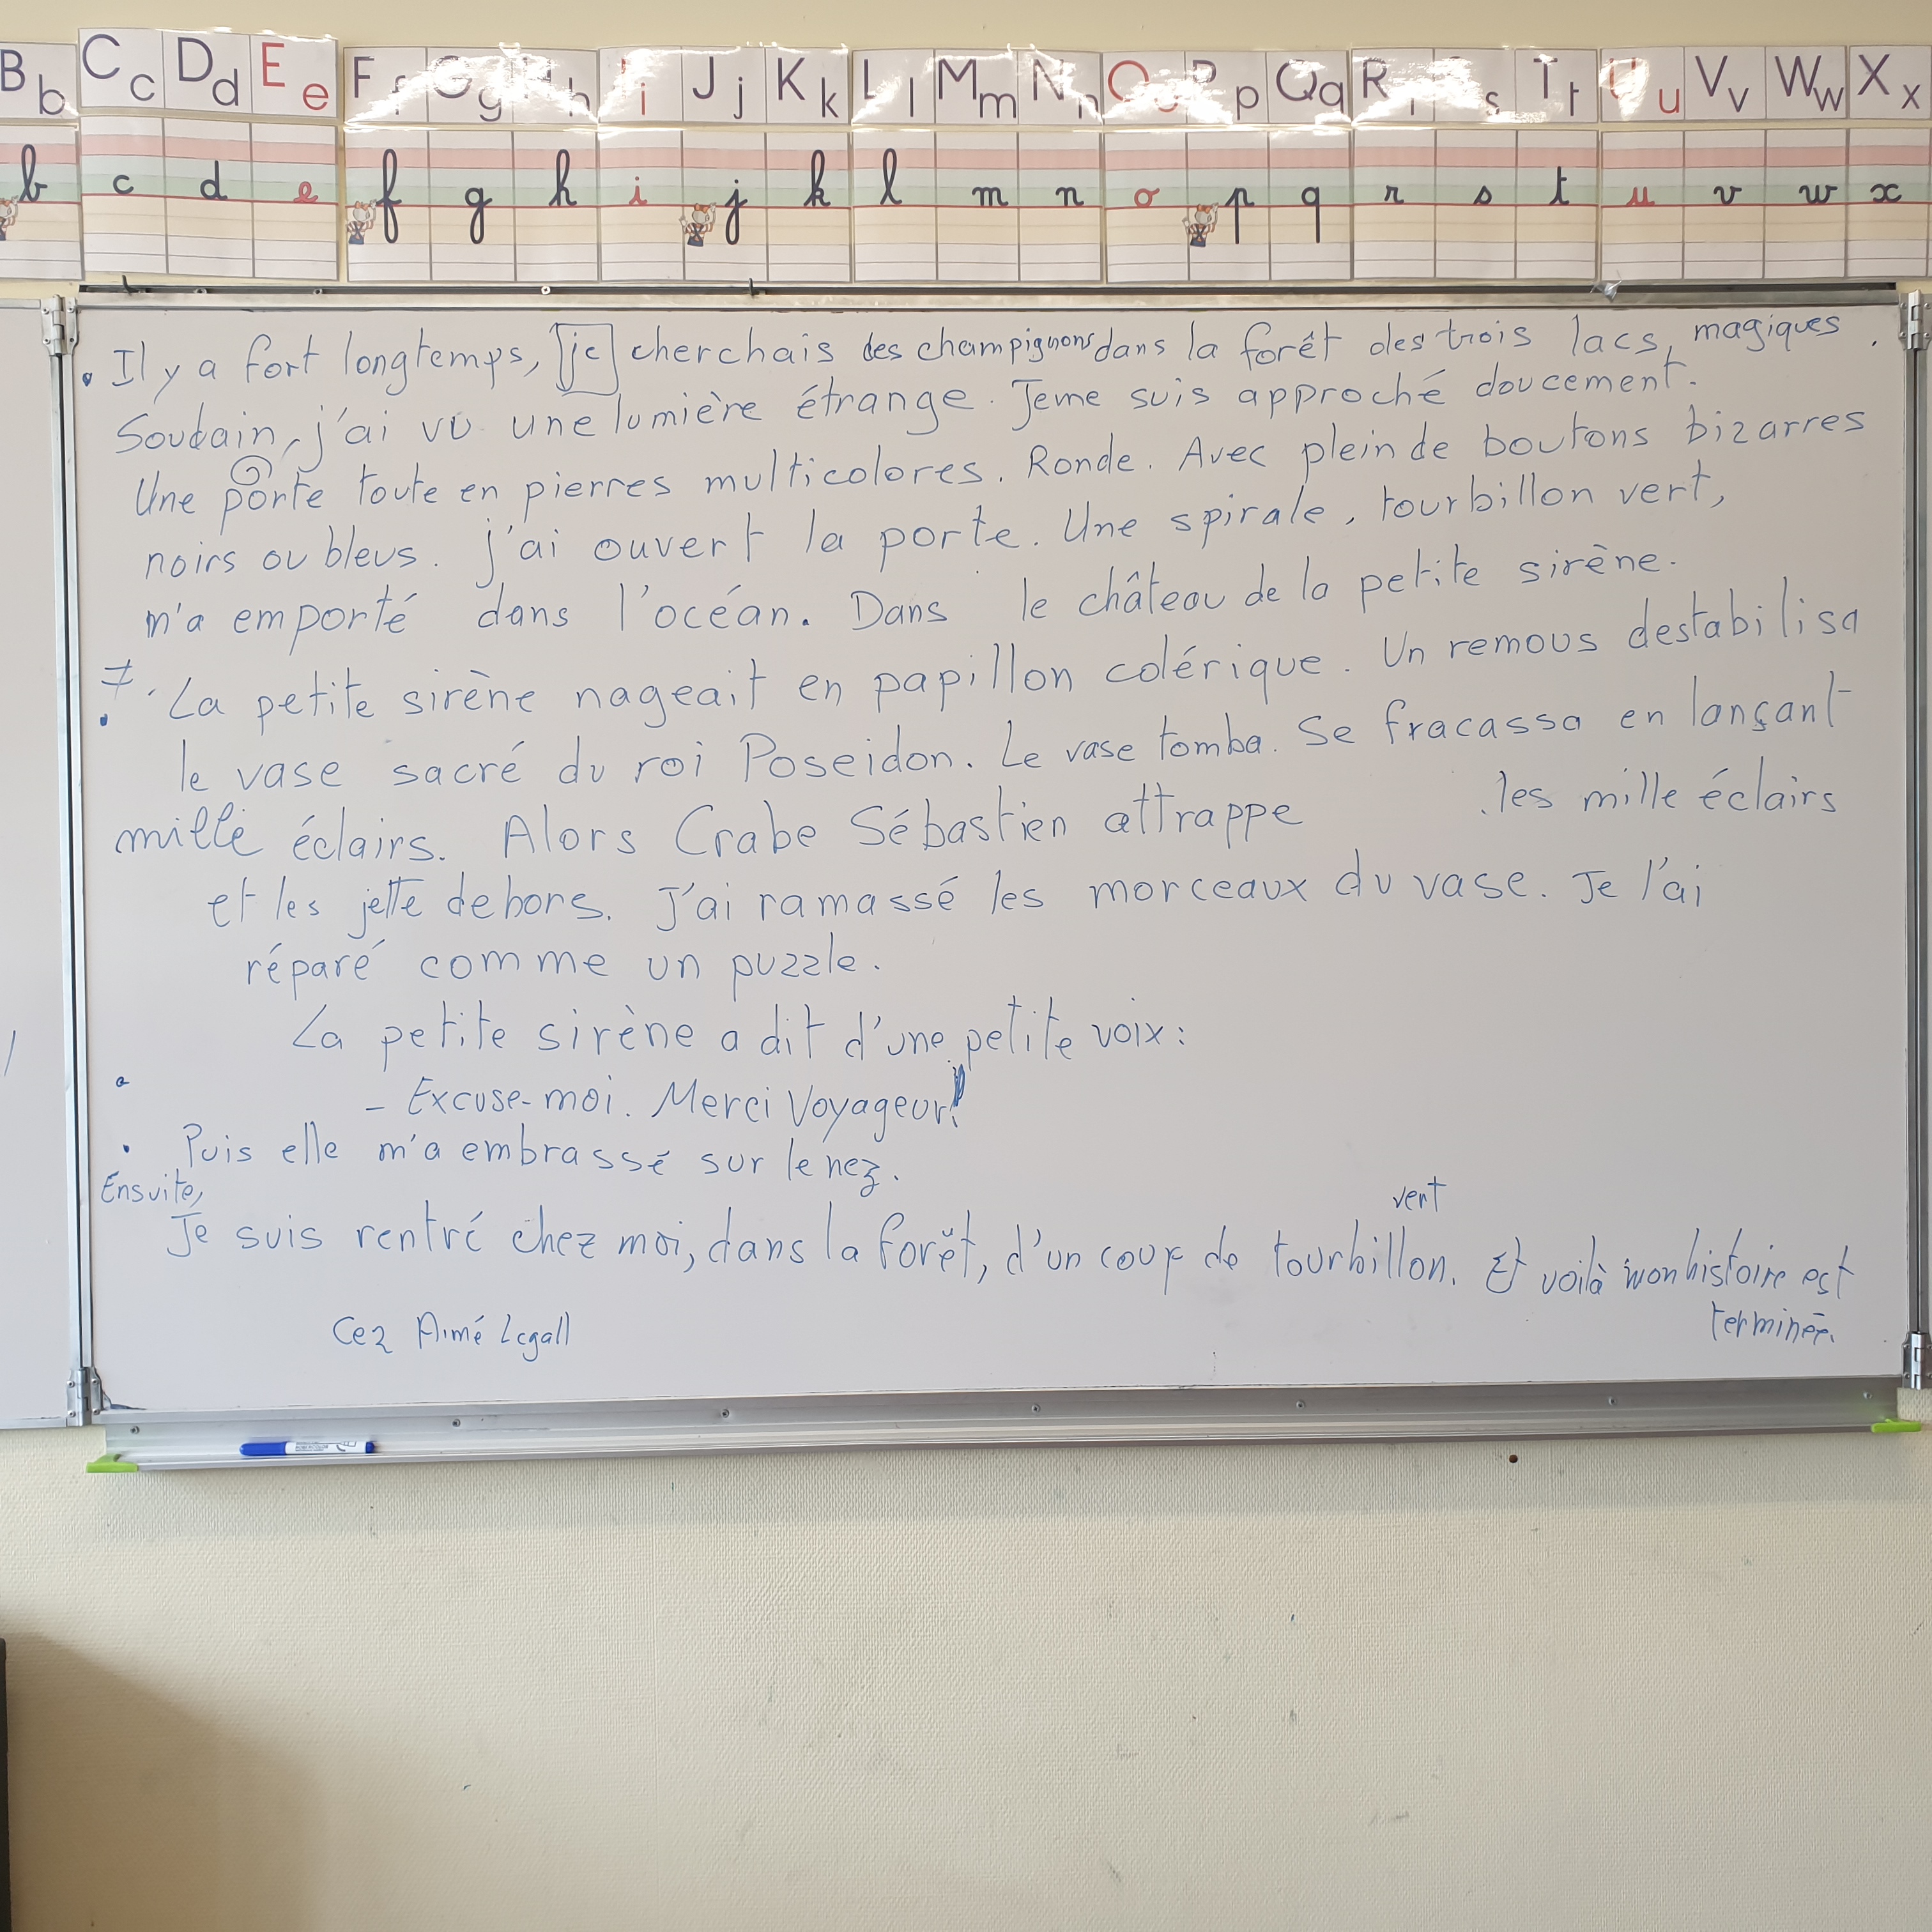 B b C c D d E e F f G g h i J j K k L l M m N n O P p Q q R s T t U u V v W w X x
b c d e f g h i j k l m n o p q r s t u v w x
Il y a fort longtemps, je cherchais des champignons dans la forêt des trois lacs, magiques.
Soudain, j'ai vu une lumière étrange. Je me suis approché doucement.
Une porte toute en pierres multicolores. Ronde. Avec plein de boutons bizarres
noirs ou bleus. j'ai ouvert la porte. Une spirale, tourbillon vert,
m'a emporté dans l'océan. Dans le château de la petite sirène.
La petite sirène nageait en papillon colérique. Un remous destabilisa
le vase sacré du roi Poseidon. Le vase tomba. Se fracassa en lançant
mille éclairs. Alors Crabe Sébastien attrappe les mille éclairs
et les jette dehors. J'ai ramassé les morceaux du vase. Je l'ai
réparé comme un puzzle.
La petite sirène a dit d'une petite voix :
- Excuse-moi. Merci Voyageur!
Puis elle m'a embrassé sur le nez.
Ensuite,
vert
Je suis rentré chez moi, dans la forêt, d'un coup de tourbillon. Et voilà mon histoire est
terminée.
Ce2 Aimé Legall